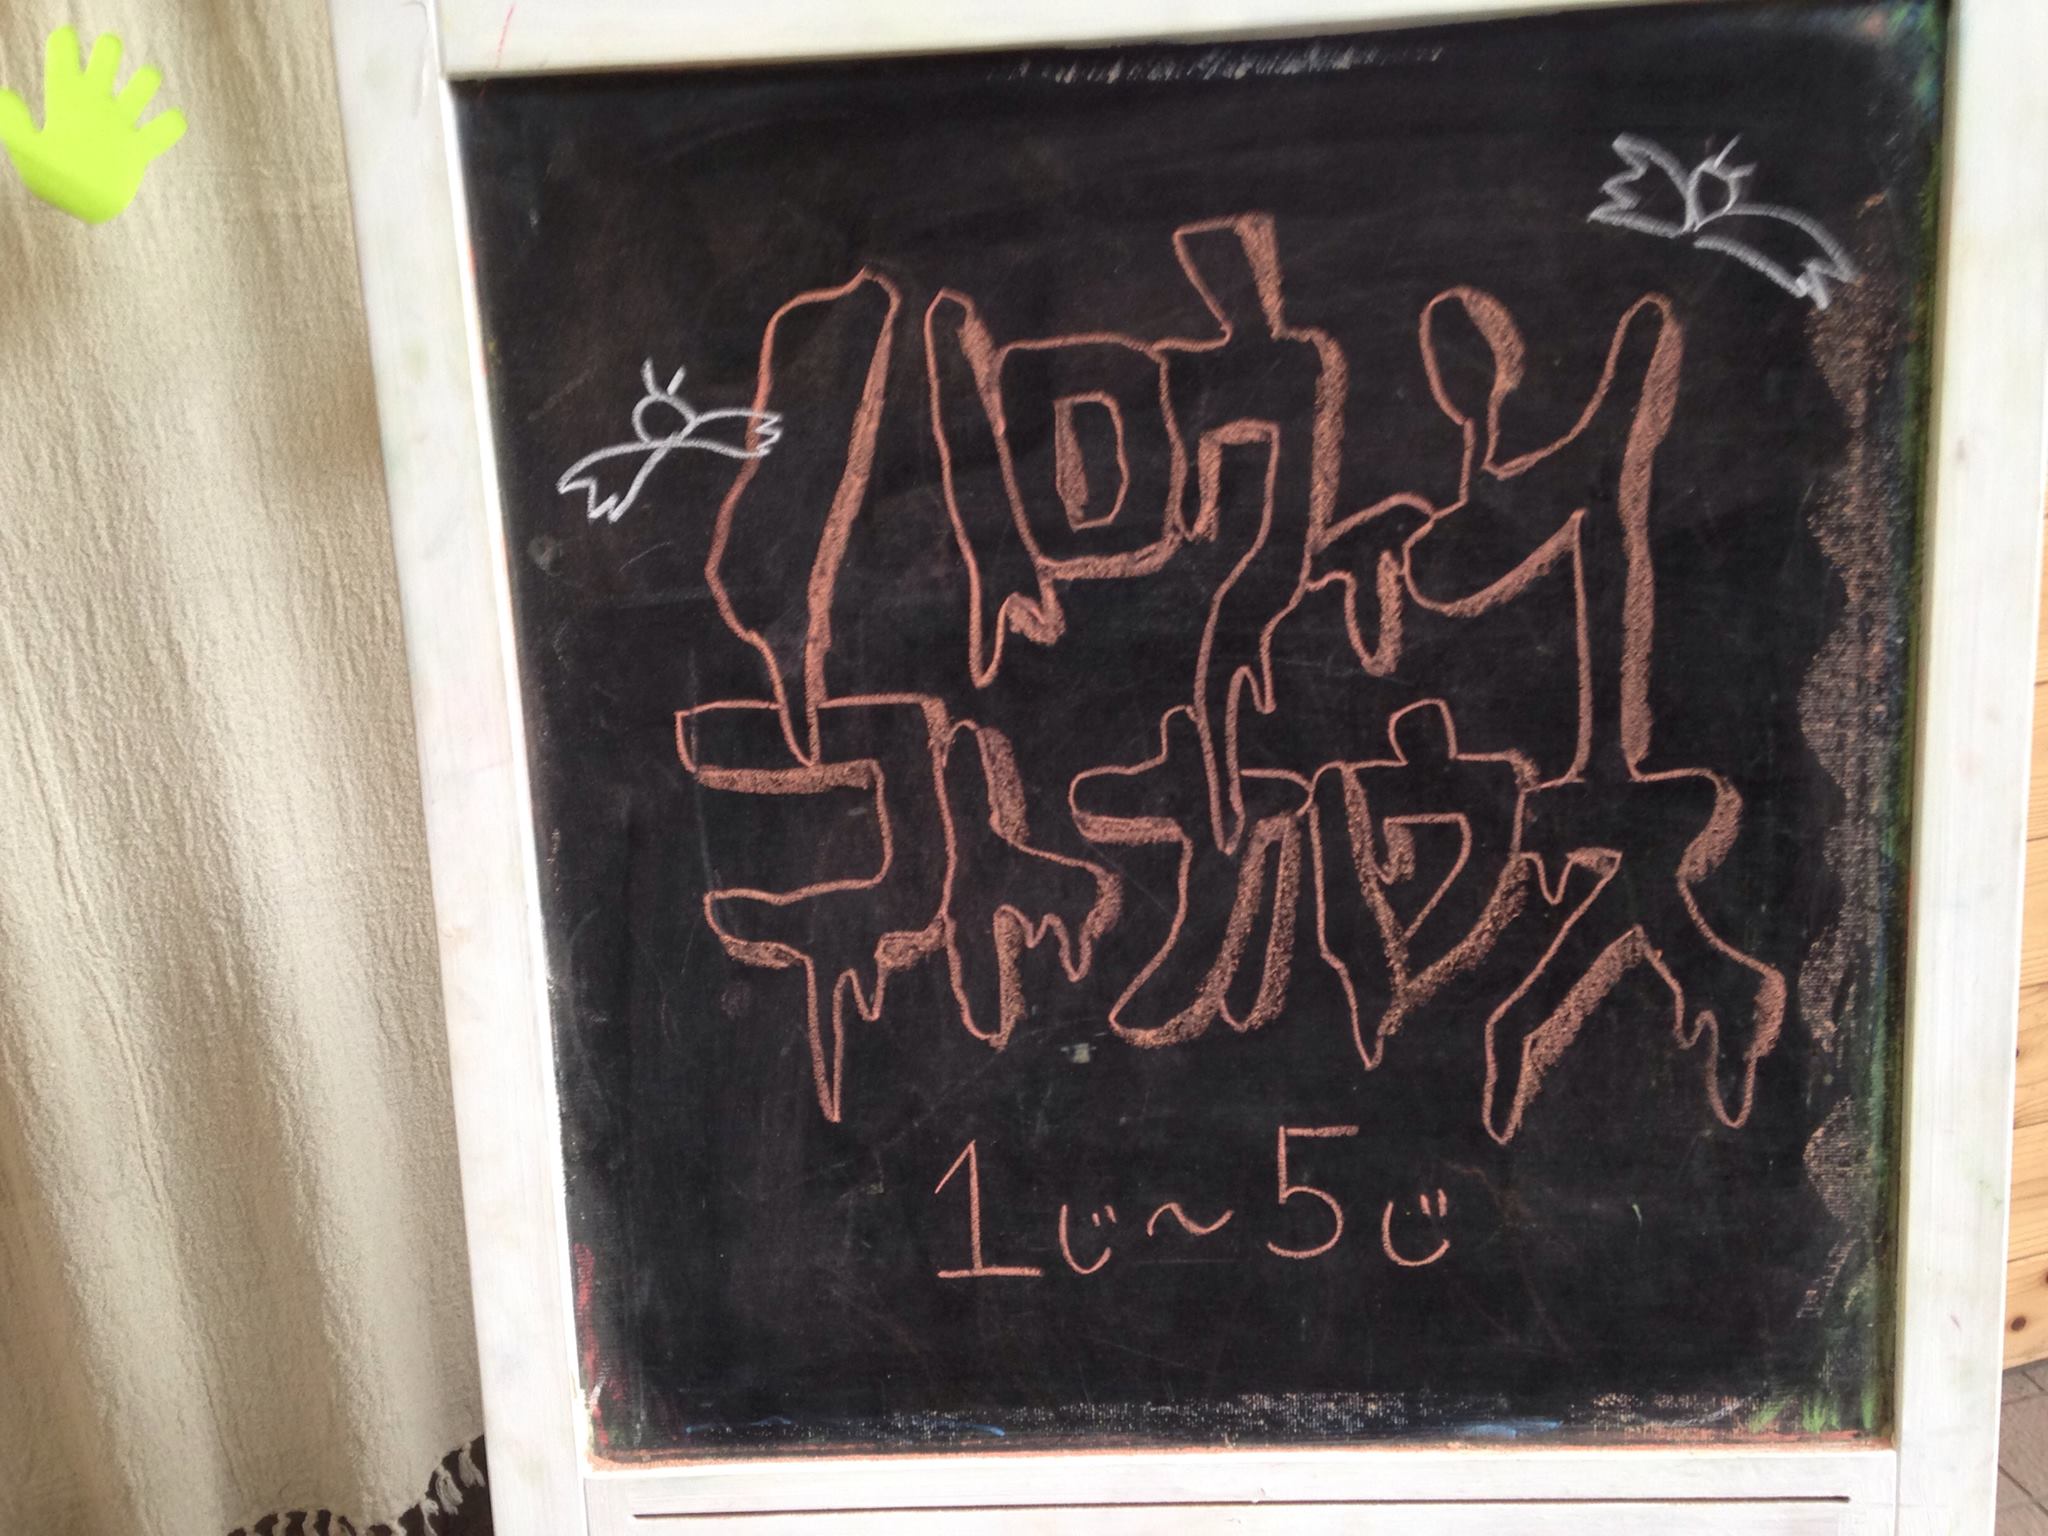 ハロウィン
コトナハウス
1じ～5じ